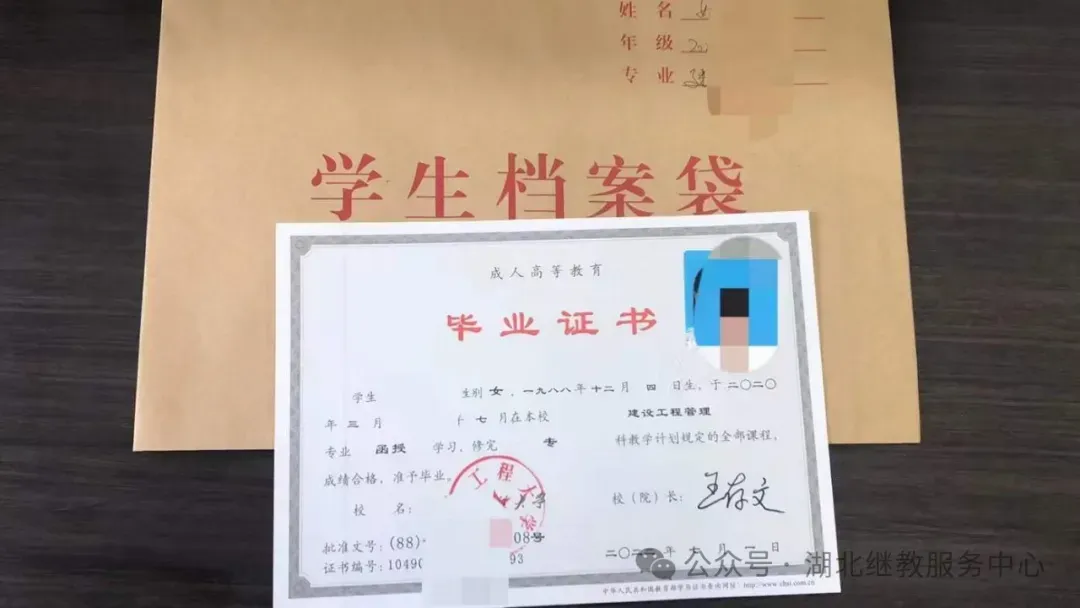 姓 名
年 级
专 业
学生档案袋
成人高等教育
毕业证书
学生 性别 女，一九八八年十二月 四 日生，于二〇二〇
年 三 月 七 月在本校 建设工程管理
专业 函授 学习，修完 专 科教学计划规定的全部课程，
成绩合格，准予毕业。
校 名： 大学 校（院）长： 王存文
工程大
批准文号：(88) 08号
证书编号：1049 93 二〇二二年 七 月 一 日
中华人民共和国教育部学历证书查询网址：http://www.chsi.com.cn
公众号·湖北继教服务中心